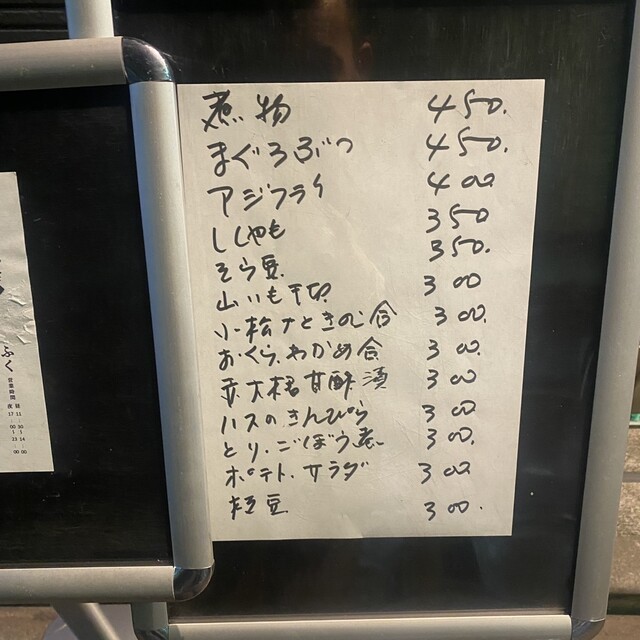 煮物 450.
まぐろぶつ 450.
アジフライ 400
ししゃも 350
そら豆 350.
山いも千切 300
小松ナときのこ合 300.
おくら.わかめ合 300.
大根甘酢漬 300
ハスのきんぴら 300
とり.ごぼう煮 300.
ポテト.サラダ 300
枝豆 300.
ふく
営業時間
昼 11:30〜14:00
夜 17:00〜23:00